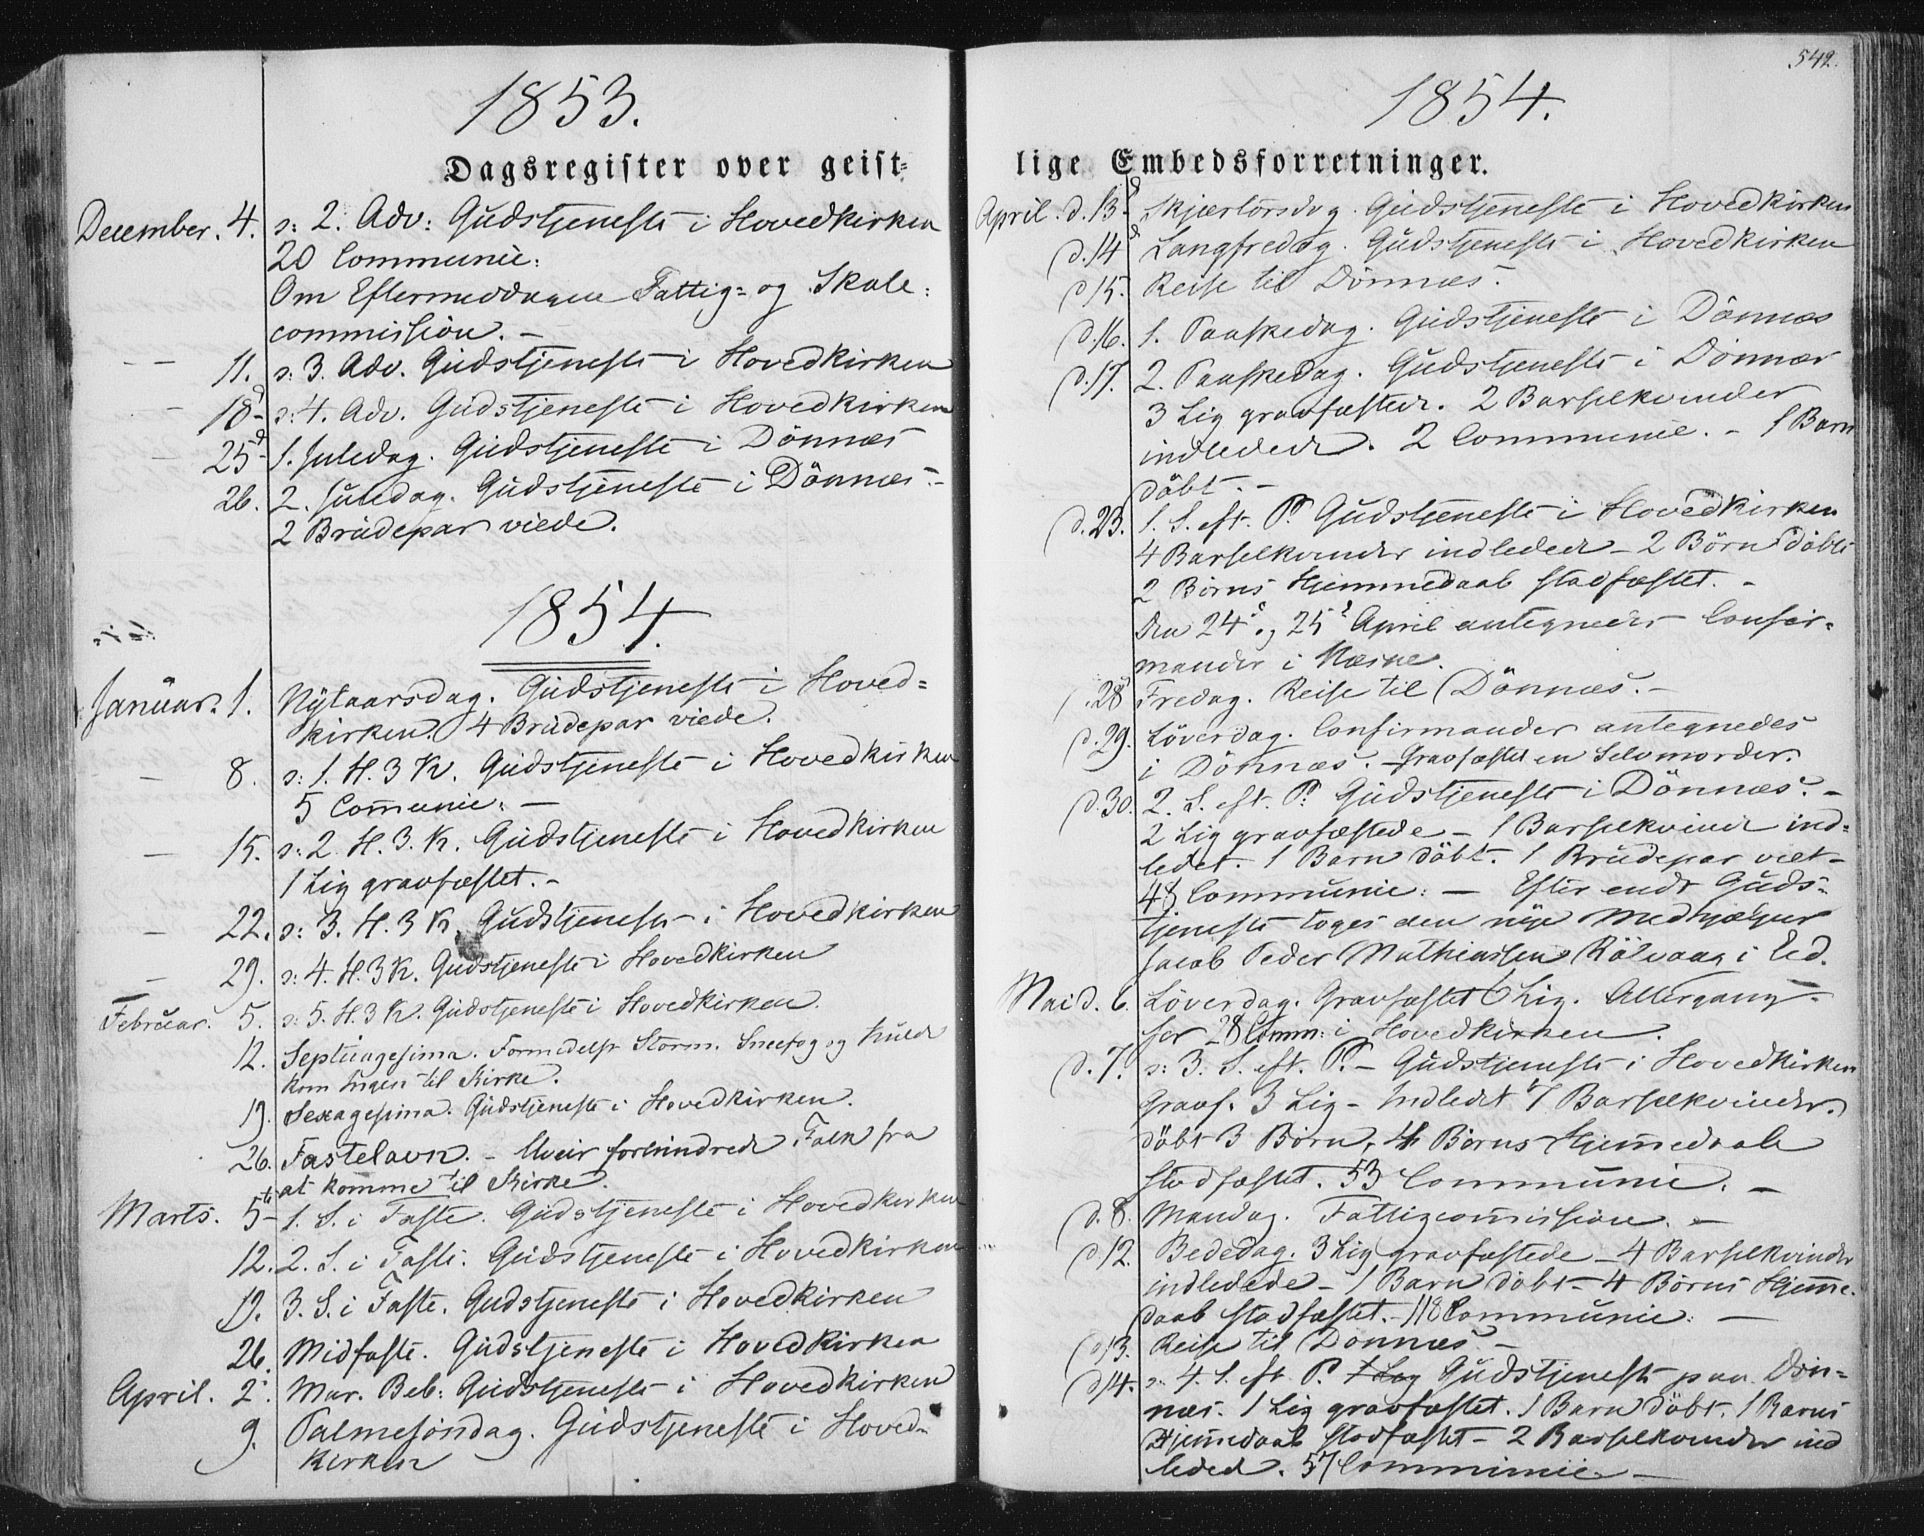 1853.
Dagsregister over geist=
December. 4. s: 2. Adv: Gudstjeneste i Hovedkirken
20 Communic:
Om Eftermiddagen Fattig= og Skole:
commission. -
11. s: 3. Adv. Gudstjeneste i Hovedkirken
18d s: 4. Adv. Gudstjeneste i Hovedkirken
25d 1. Juledag. Gudstjeneste i Dönnæs
26. 2. Juledag. Gudstjeneste i Dönnæs. -
2 Brüdepar viede.
1854.
Januar. 1. Nytaarsdag. Gudstjeneste i Hoved=
kirken. 4 Brüdepar viede.
8. s: 1. H. 3 K. Gudstjeneste i Hovedkirken
5 Com̄unic: -
15. s: 2. H. 3. K. Gudstjeneste i Hovedkirken
1 Lig gravfæstet. -
22. s: 3. H. 3 K. Gudstjeneste i Hovedkirken
29. s: 4. H. 3 K. Gudstjeneste i Hovedkirken
Februar. 5. s: 5. H. 3 K. Gudstjeneste i Hovedkirken.
12. Septuagesima. Formedelst Storm. Sneefog og Kulde
kom Ingen til Kirke.
19. Sexagesima. Gudstjeneste i Hovedkirken.
26. Fastelavn. - Uveir forhindrede Folk fra
at komme til Kirke.
Marts. 5te 1. S. i Faste. Gudstjeneste i Hovedkirken
12. 2. S. i Faste. Gudstjeneste i Hovedkirken
19. 3. S. i Faste. Gudstjeneste i Hovedkirken
26. Midfaste. Gudstjeneste i Hovedkirken
April. 2. Mar. Beb: Gudstjeneste i Hovedkirken
9. Palmesöndag. Gudstjeneste i Hoved=
kirken
542.
1854.
lige Embedsforretninger.
April. d. 13d Skjærtorsdag. Gudstjeneste i Hovedkirken
d. 14d Langfredag. Gudstjeneste i Hovedkirken
d 15. Reise til Dönnæs.
d. 16. 1. Paaskedag. Gudstjeneste i Dönnæs
d. 17. 2. Paaskedag. Gudstjeneste i Dönnæs
3 Lig gravfæstede. 2 Barselkvinder
indledede. 2 Communic. - 1 Barn
döbt. -
d. 23. 1. S. eft. P. Gudstjeneste i Hovedkirken
4 Barselkvinder indledede - 2 Börn döbte
2 Börns Hjemmedaab stadfæstet. -
Den 24d og 25d April antegnedes Confir=
mander i Næsne.
28d Fredag. Reise til Dönnæs. -
d. 29. Löverdag. Confirmander antegnedes
i Dönnæs. Gravfæstet en Selvmorder.
d. 30. 2. S. eft. P. Gudstjeneste i Dönnæs. -
2 Lig gravfæstede - 1 Barselkvinde ind=
ledet. 1 Barn döbt. 1 Brüdepar viet -
48 Communic: - Efter endt Guds=
tjeneste toges den nye Medhjælper
Jacob Peder Mathiassen Rölvaag i Ed.
Mai d. 6. Löverdag. Gravfæstet 6 Lig. Altergang
for 28 Comm: i Hovedkirken.
d. 7. s: 3. S. eft. P. - Gudstjeneste i Hovedkirken
Gravf. 3 Lig - Indledet 7 Barselkvinder.
döbt 3 Börn, 4 Börns Hjem̄edaab
stadfæstet. 53 Communic. -
d. 8. Mandag. Fattigcom̄ission. -
d 12. Bededag. 3 Lig gravfæstede - 4 Barselkvinder
indledede - 1 Barn döbt - 4 Börns Hjem̄e=
daab stadfæstet. - 118 Communic: -
d 13. Reise til Dönnæs -
d 14. s: 4. S. eft P. Gudstjeneste paa Dön=
næs. 1 Lig gravfæstet. 1 Barn döbt. 1 Barns
Hjem̄edaab stadfæstet - 2 Barselkvinder ind
ledede. 57 Communic. -